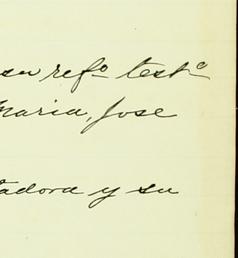 su ref.º test.º
Maria, Jose
tadora y su